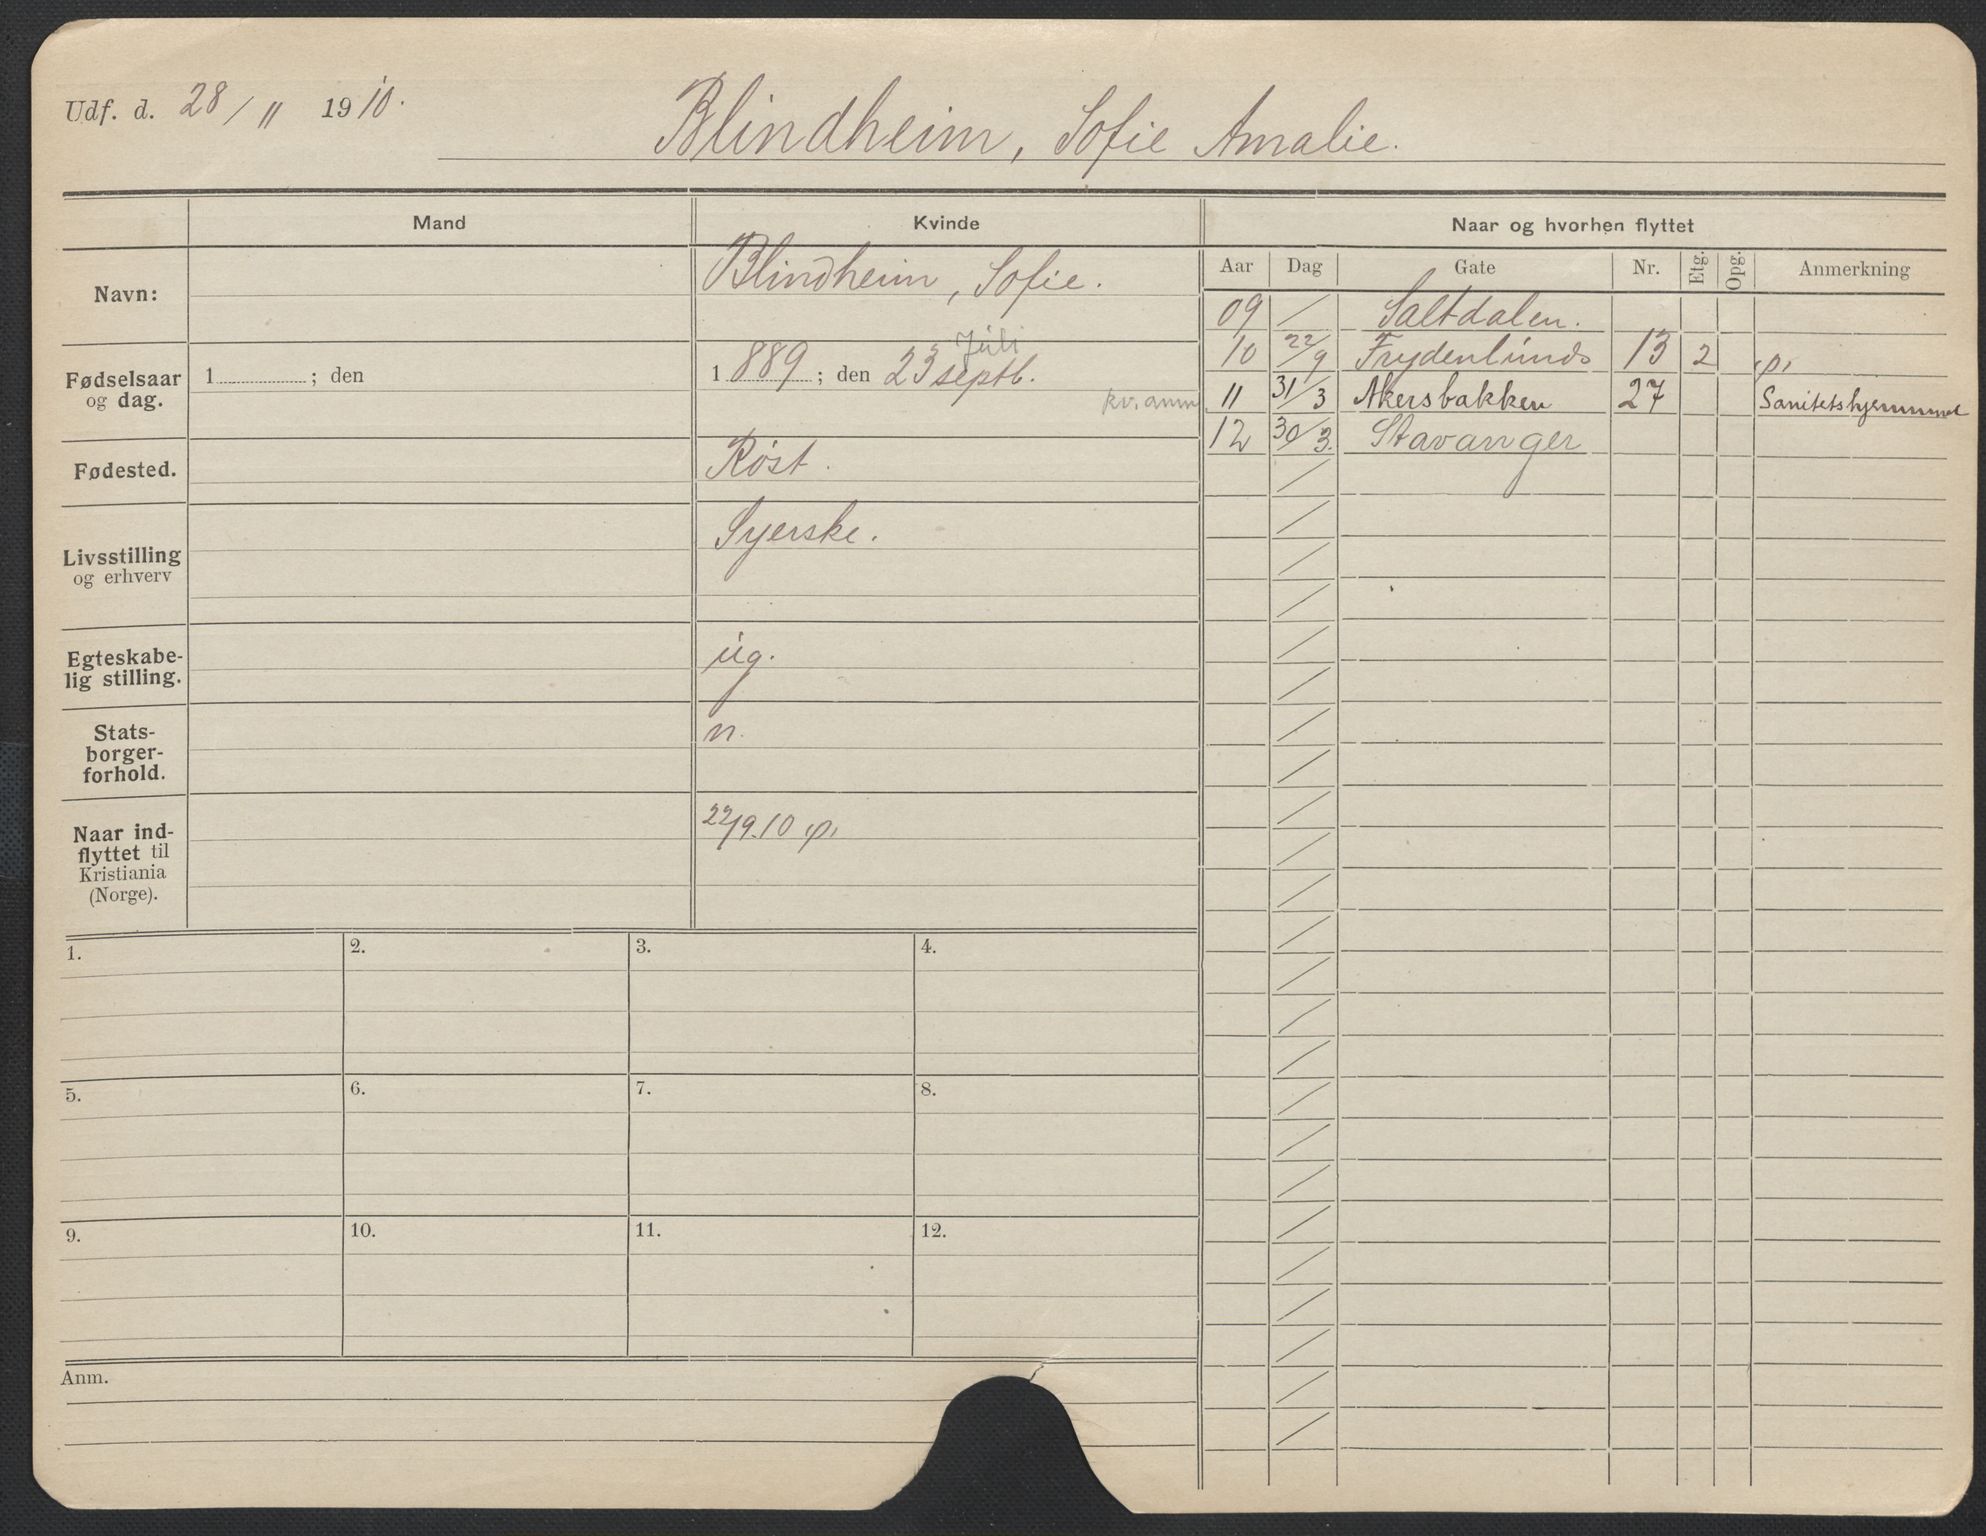 Udf. d. 28/11 1910.
Blindheim, Sofie Amalie.
Mand
Kvinde
Naar og hvorhen flyttet
Aar Dag Gate Nr. Etg. Opg. Anmerkning
Navn:
Blindheim, Sofie.
Fødselsaar
og dag.
1 ; den
Juli
1 889 ; den 23 septb.
kv. anm
Fødested.
Røst.
Livsstilling
og erhverv
Syerske.
Egteskabe-
lig stilling.
ug.
Stats-
borger-
forhold.
n.
Naar ind-
flyttet til
Kristiania
(Norge).
22/9.10 p.
09 / Saltdalen.
10 22/9 Frydenlunds 13 2 p.
11 31/3 Akersbakken 27 Sanitetshjemmet
12 30/3. Stavanger
1.
2.
3.
4.
5.
6.
7.
8.
9.
10.
11.
12.
Anm.